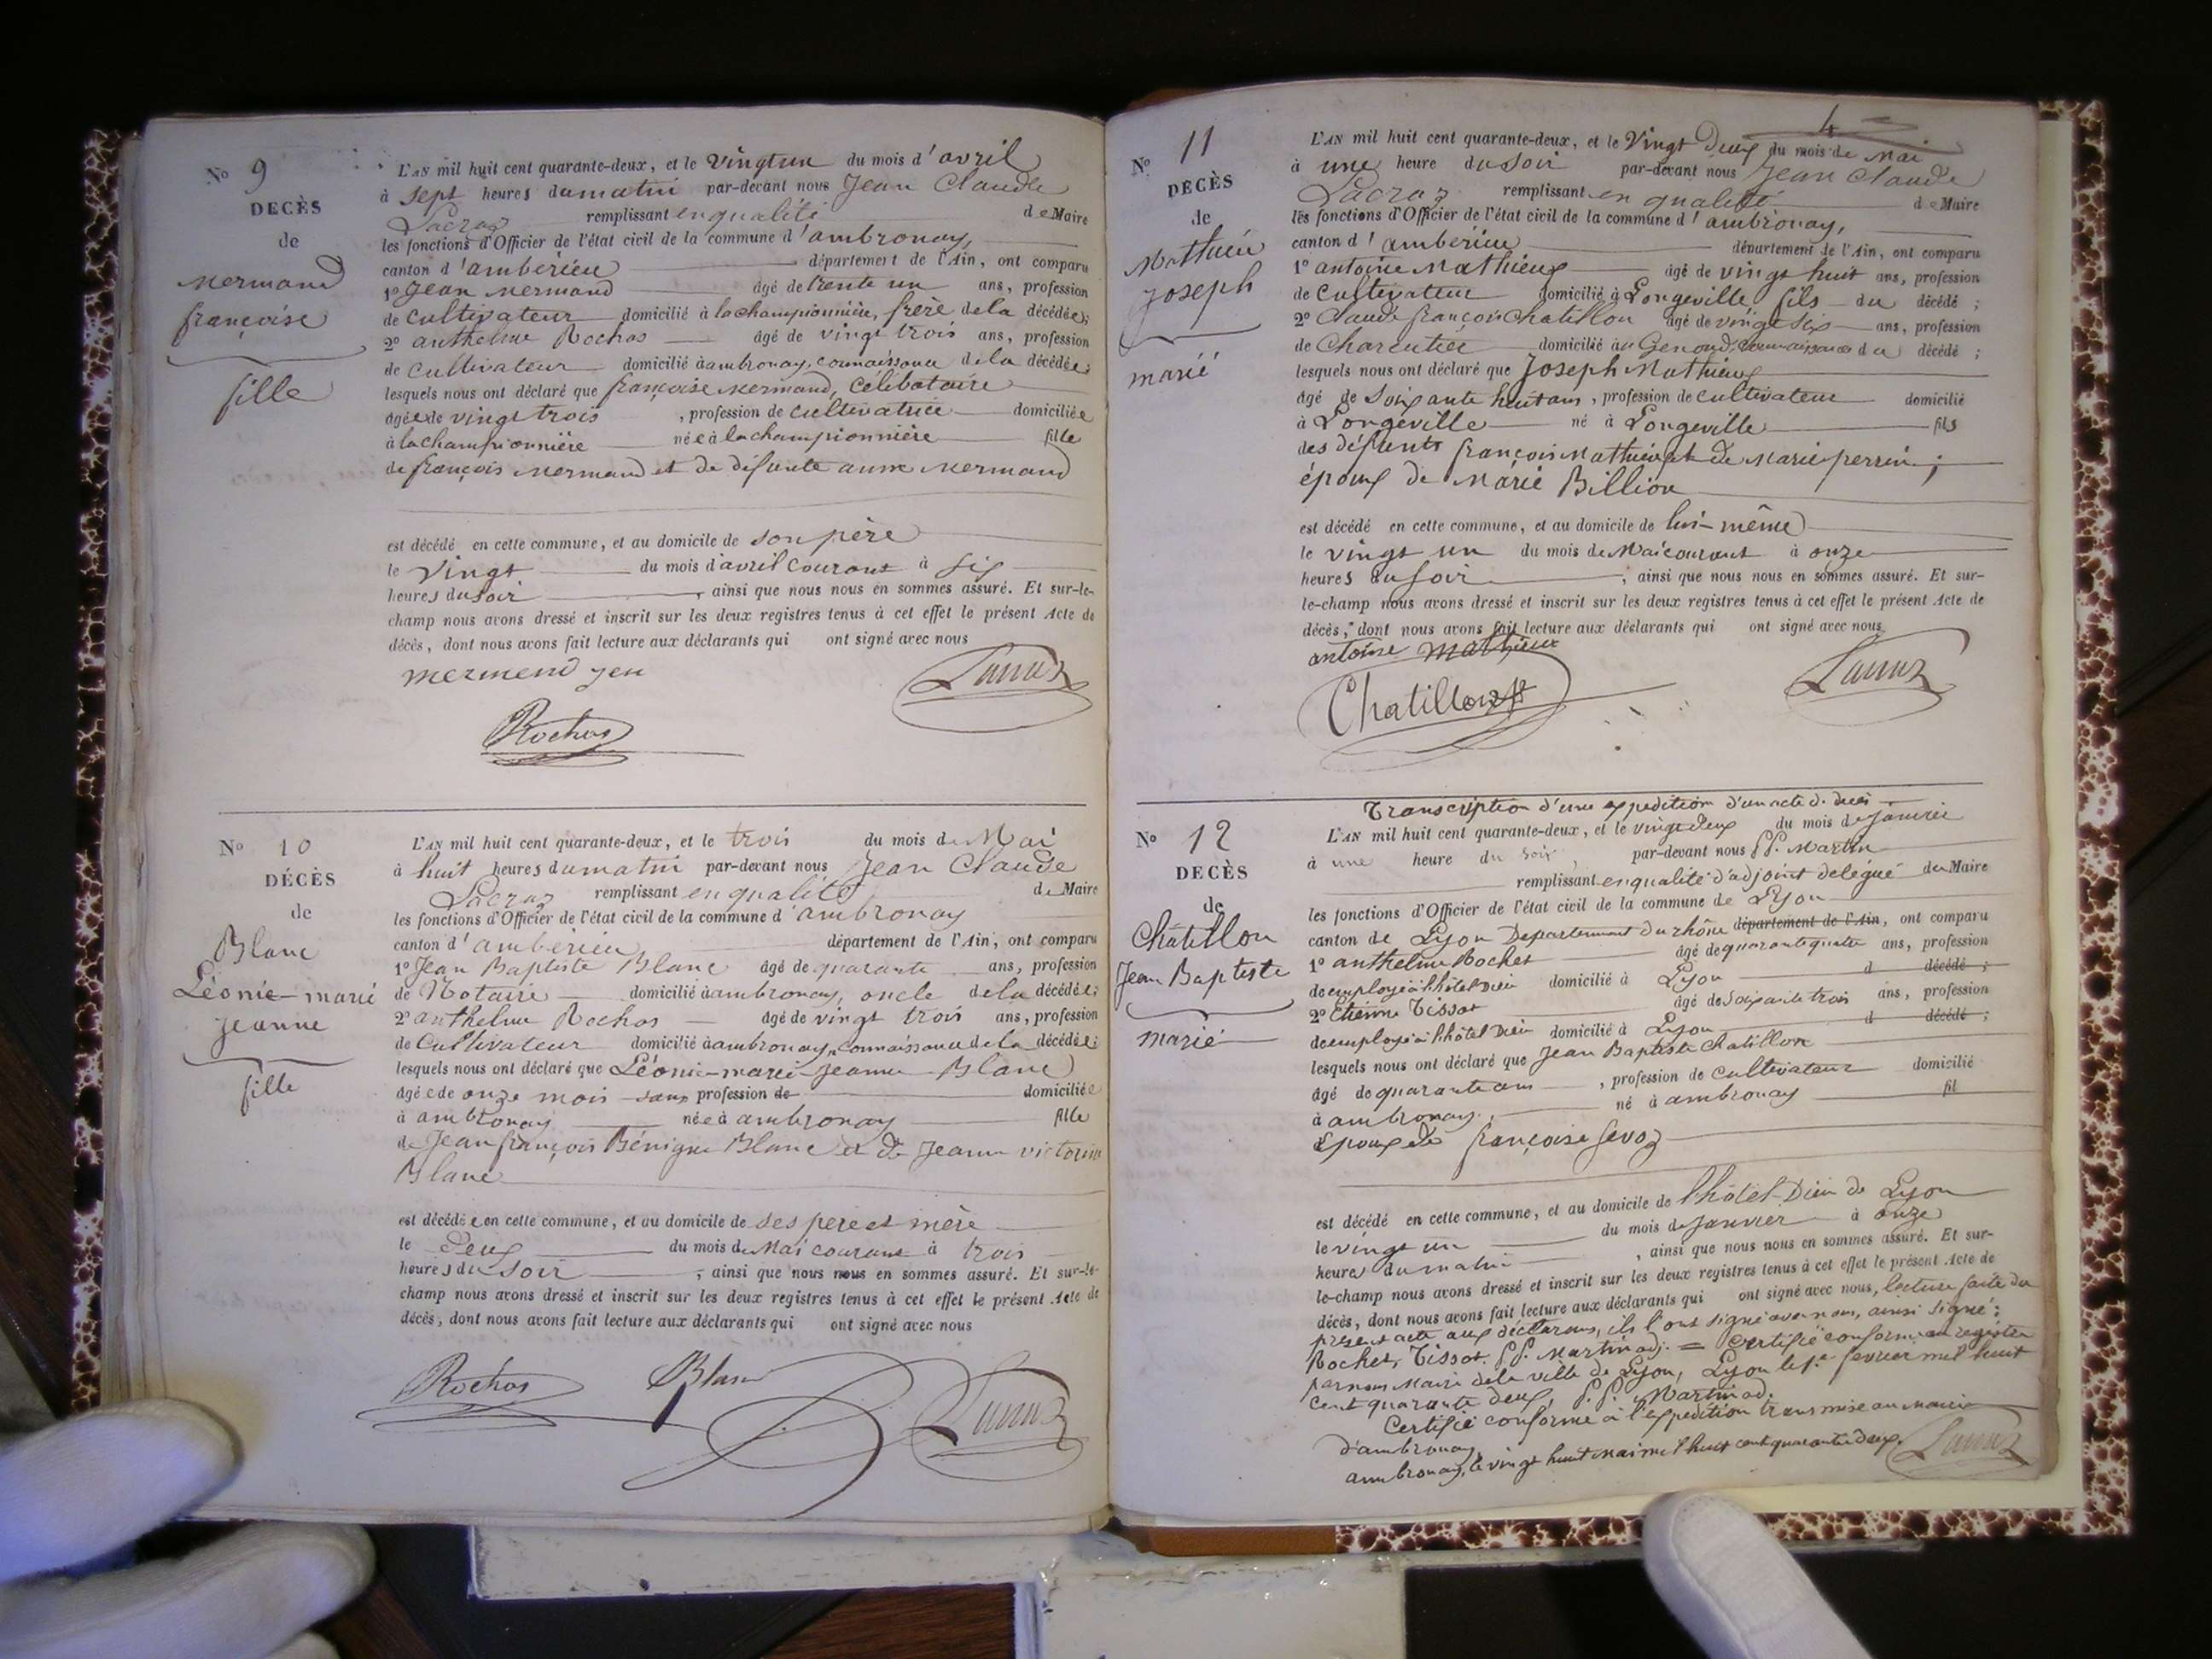 No 9
DECÈS
de
Mermand
françoise
fille
L'AN mil huit cent quarante-deux, et le vingtun du mois d'avril
à sept heures du matin par-devant nous Jean Claude
Lacraz remplissant en qualité de Maire
les fonctions d'Officier de l'état civil de la commune d'ambronay,
canton d'ambérieu département de l'Ain, ont comparu
1º Jean Mermand âgé de trente un ans, profession
de cultivateur domicilié à la championnière, frère de la décédée;
2º anthelme Rochas âgé de vingt trois ans, profession
de cultivateur domicilié à ambronay, connaissance de la décédée;
lesquels nous ont déclaré que françoise Mermand, célibataire
agée de vingt trois , profession de cultivatrice domiciliée
à la championnière née à la championnière fille
de françois Mermand et de défunte anne Mermand
est décédé en cette commune, et au domicile de son père
le vingt du mois d'avril courant à six
heures du soir , ainsi que nous nous en sommes assuré. Et sur-le-
champ nous avons dressé et inscrit sur les deux registres tenus à cet effet le présent Acte de
décès, dont nous avons fait lecture aux déclarants qui ont signé avec nous
mermend jen
Lacraz
Rochas
No 10
DÉCÈS
de
Blanc
Léonie-marie
jeanne
fille
L'AN mil huit cent quarante-deux, et le trois du mois de Mai
à huit heures du matin par-devant nous Jean Claude
Lacraz remplissant en qualité de Maire
les fonctions d'Officier de l'état civil de la commune d'ambronay
canton d'ambérieu département de l'Ain, ont comparu
1º Jean Baptiste Blanc âgé de quarante ans, profession
de Notaire domicilié à ambronay, oncle de la décédée;
2º anthelme Rochas âgé de vingt trois ans, profession
de Cultivateur domicilié à ambronay, connaissance de la décédée;
lesquels nous ont déclaré que Léonie-marie jeanne Blanc
âgée de onze mois sans profession de domiciliée
à ambronay née à ambronay fille
de Jean françois Bénigne Blanc et de Jeanne victorine
Blanc
est décédée en cette commune, et au domicile de ses père et mère
le deux du mois de Mai courant à trois
heures du soir , ainsi que nous nous en sommes assuré. Et sur-le-
champ nous avons dressé et inscrit sur les deux registres tenus à cet effet le présent Acte de
décès, dont nous avons fait lecture aux déclarants qui ont signé avec nous
Rochas Blanc Lacraz
4
No 11
DÉCÈS
de
Mathieu
joseph
marié
L'AN mil huit cent quarante-deux, et le Vingt Deux du mois de Mai
à une heure du soir par-devant nous Jean Claude
Lacraz remplissant en qualité de Maire
les fonctions d'Officier de l'état civil de la commune d'ambronay,
canton d'ambérieu département de l'Ain, ont comparu
1º antoine Mathieux âgé de vingt huit ans, profession
de Cultivateur domicilié à Longeville fils du décédé;
2º Claude françois Chatillon âgé de vingt six ans, profession
de Charcutier domicilié au Genoud, connaissance du décédé;
lesquels nous ont déclaré que Joseph Mathieux
âgé de Soixante huit ans, profession de cultivateur domicilié
à Longeville né à Longeville fils
des défunts françois Mathieux et de Marie perrin;
époux de Marie Billion
est décédé en cette commune, et au domicile de lui-même
le vingt un du mois de Mai courant à onze
heures du soir ; ainsi que nous nous en sommes assuré. Et sur-
le-champ nous avons dressé et inscrit sur les deux registres tenus à cet effet le présent Acte de
décès, dont nous avons fait lecture aux déclarants qui ont signé avec nous
antoine mathieux
Chatillon Lacraz
Transcription d'une expedition d'un acte de décès
No 12
DECÈS
de
Châtillon
Jean Baptiste
marié
L'AN mil huit cent quarante-deux, et le vingt deux du mois de janvier
à une heure du soir, par-devant nous Martin
remplissant en qualité d'adjoint delégué du Maire
les fonctions d'Officier de l'état civil de la commune de Lyon
canton de Lyon Departement du rhône département de l'Ain, ont comparu
1º anthelme Rochet âgé de quarante quatre ans, profession
de employé à l'hôtel Dieu domicilié à Lyon d décédé;
2º Etienne Tissot âgé de soixante trois ans, profession
de employé à l'hôtel Dieu domicilié à Lyon d décédé;
lesquels nous ont déclaré que Jean Baptiste Chatillon
âgé de quarante ans , profession de cultivateur domicilié
à ambronay, né à ambronay fil
Epoux de françoise Sevoz
est décédé en cette commune, et au domicile de l'hôtel-Dieu de Lyon
le vingt un du mois de janvier à onze
heures du matin , ainsi que nous nous en sommes assuré. Et sur-
le-champ nous avons dressé et inscrit sur les deux registres tenus à cet effet le présent Acte de
décès, dont nous avons fait lecture aux déclarants qui ont signé avec nous, lecture faite du
présent acte aux déclarans, ils l'ont signé avec nous, ainsi signé:
Rochet, Tissot, Martin adj. = Certifié conforme au registre
par nous Maire de la ville de Lyon, Lyon le 1er fevrier mil huit
cent quarante deux, Martin ad.
Certifié conforme à l'expedition transmise au Maire
d'ambronay,
ambronay, le vingt huit mai mil huit cent quarante deux. Lacraz